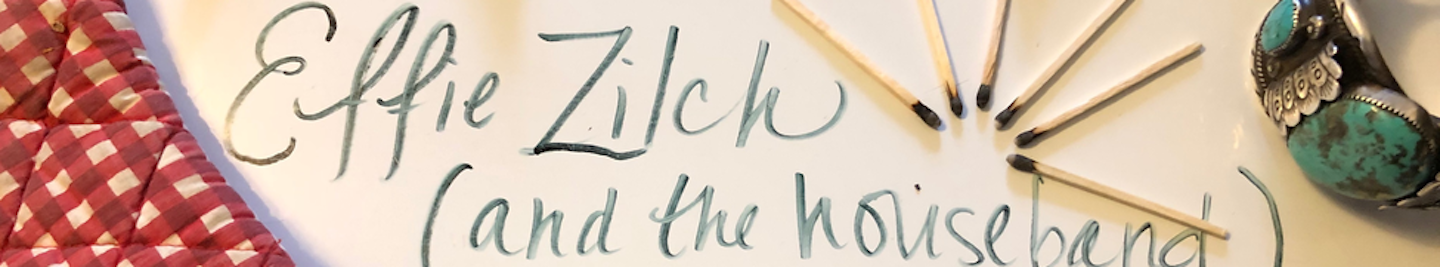 Effie Zilch
(and the houseband)